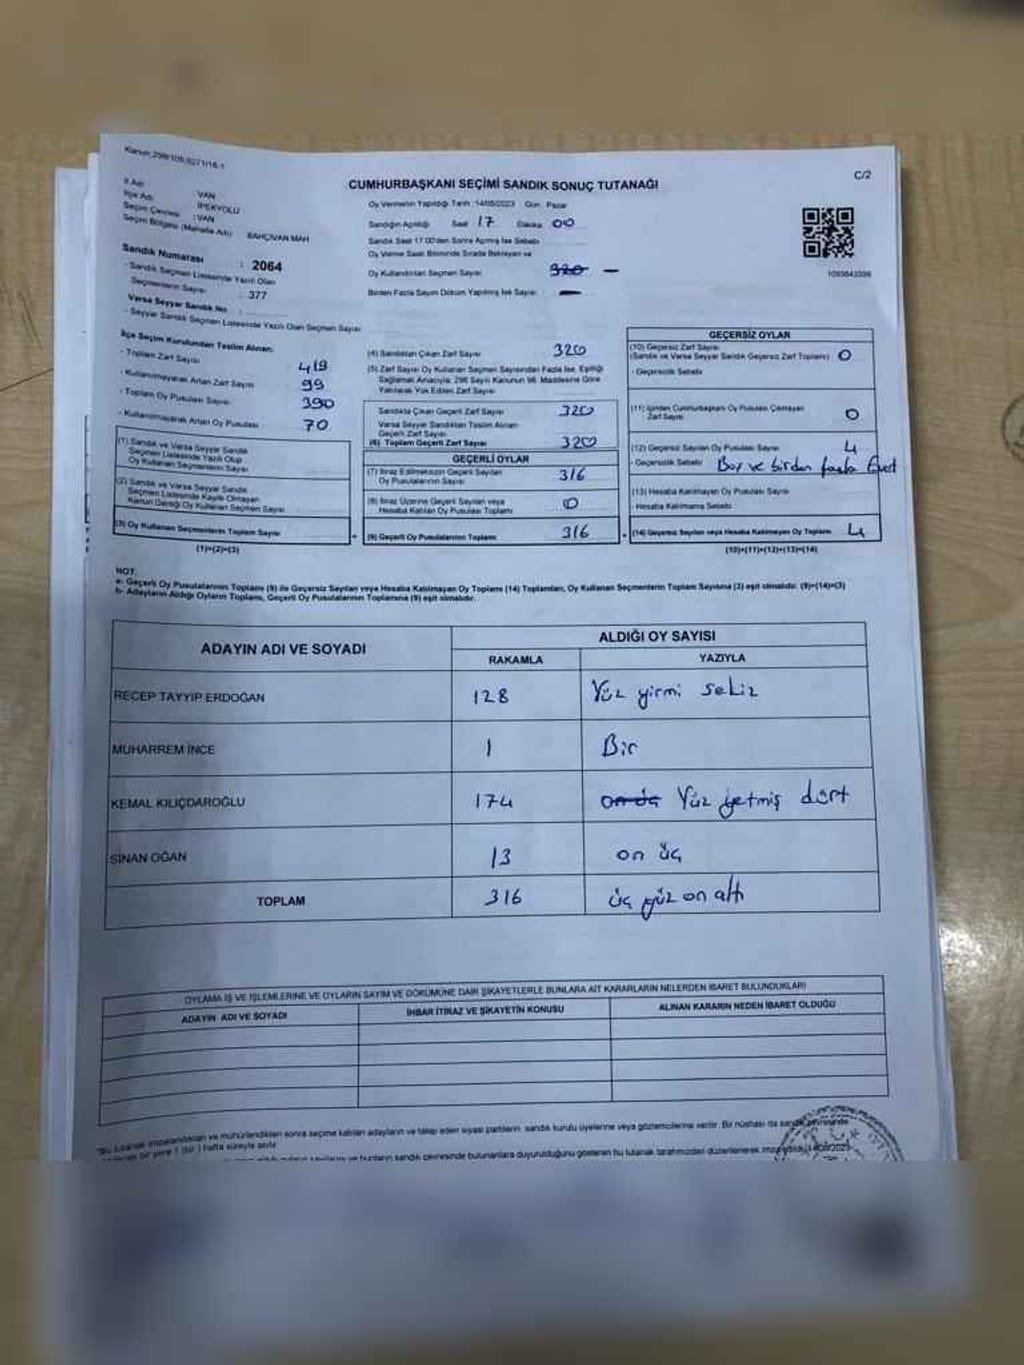 Kanun:298/105,6271/16-1
C/2
CUMHURBAŞKANI SEÇİMİ SANDIK SONUÇ TUTANAĞI
İl Adı : VAN
İlçe Adı : İPEKYOLU
Seçim Çevresi : VAN
Seçim Bölgesi (Mahalle Adı) BAHÇIVAN MAH
Sandık Numarası : 2064
- Sandık Seçmen Listesinde Yazılı Olan
Seçmenlerin Sayısı : 377
Varsa Seyyar Sandık No :
- Seyyar Sandık Seçmen Listesinde Yazılı Olan Seçmen Sayısı
Oy Vermenin Yapıldığı Tarih :14/05/2023 Gün: Pazar
Sandığın Açıldığı Saat 17 Dakika 00
Sandık Saat 17:00'den Sonra Açılmış İse Sebebi
Oy Verme Saati Bitiminde Sırada Bekleyen ve
Oy Kullandırılan Seçmen Sayısı 320 —
Birden Fazla Sayım Döküm Yapılmış İse Sayısı —
1093843398
İlçe Seçim Kurulundan Teslim Alınan:
- Toplam Zarf Sayısı 419
- Kullanılmayarak Artan Zarf Sayısı 99
- Toplam Oy Pusulası Sayısı 390
- Kullanılmayarak Artan Oy Pusulası 70
(1) Sandık ve Varsa Seyyar Sandık
Seçmen Listesinde Yazılı Olup
Oy Kullanan Seçmenlerin Sayısı
(2) Sandık ve Varsa Seyyar Sandık
Seçmen Listesinde Kayıtlı Olmayan
Kanun Gereği Oy Kullanan Seçmen Sayısı
(3) Oy Kullanan Seçmenlerin Toplam Sayısı
(1)+(2)=(3)
(4) Sandıktan Çıkan Zarf Sayısı 320
(5) Zarf Sayısı Oy Kullanan Seçmen Sayısından Fazla İse, Eşitliği
Sağlamak Amacıyla; 298 Sayılı Kanunun 98. Maddesine Göre
Yakılarak Yok Edilen Zarf Sayısı
Sandıkta Çıkan Geçerli Zarf Sayısı 320
Varsa Seyyar Sandıktan Teslim Alınan
Geçerli Zarf Sayısı
(6) Toplam Geçerli Zarf Sayısı 320
GEÇERLİ OYLAR
(7) İtiraz Edilmeksizin Geçerli Sayılan
Oy Pusulalarının Sayısı 316
(8) İtiraz Üzerine Geçerli Sayılan veya
Hesaba Katılan Oy Pusulası Toplamı 0
(9) Geçerli Oy Pusulalarının Toplamı 316
GEÇERSİZ OYLAR
(10) Geçersiz Zarf Sayısı
(Sandık ve Varsa Seyyar Sandık Geçersiz Zarf Toplamı) 0
- Geçersizlik Sebebi
(11) İçinden Cumhurbaşkanı Oy Pusulası Çıkmayan
Zarf Sayısı 0
(12) Geçersiz Sayılan Oy Pusulası Sayısı 4
- Geçersizlik Sebebi Boş ve birden fazla Evet
(13) Hesaba Katılmayan Oy Pusulası Sayısı
- Hesaba Katılmama Sebebi
(14) Geçersiz Sayılan veya Hesaba Katılmayan Oy Toplamı 4
(10)+(11)+(12)+(13)=(14)
NOT:
a- Geçerli Oy Pusulalarının Toplamı (9) ile Geçersiz Sayılan veya Hesaba Katılmayan Oy Toplamı (14) Toplamları, Oy Kullanan Seçmenlerin Toplam Sayısına (3) eşit olmalıdır. (9)+(14)=(3)
b- Adayların Aldığı Oyların Toplamı, Geçerli Oy Pusulalarının Toplamına (9) eşit olmalıdır.
ADAYIN ADI VE SOYADI
ALDIĞI OY SAYISI
RAKAMLA YAZIYLA
RECEP TAYYİP ERDOĞAN 128 Yüz yirmi sekiz
MUHARREM İNCE 1 Bir
KEMAL KILIÇDAROĞLU 174 Yüz yetmiş dört
SİNAN OĞAN 13 on üç
TOPLAM 316 üç yüz on altı
OYLAMA İŞ VE İŞLEMLERİNE VE OYLARIN SAYIM VE DÖKÜMÜNE DAİR ŞİKAYETLERLE BUNLARA AİT KARARLARIN NELERDEN İBARET BULUNDUKLARI
ADAYIN ADI VE SOYADI İHBAR İTİRAZ VE ŞİKAYETİN KONUSU ALINAN KARARIN NEDEN İBARET OLDUĞU
"Bu tutanak imzalandıktan ve mühürlendikten sonra seçime katılan adayların ve talep eden siyasi partilerin, sandık kurulu üyelerine veya gözlemcilerine verilir. Bir nüshası da sandık çevresinde
bir yere 1 (bir) hafta süreyle asılır.
sandık çevresinde bulunanlara duyurulduğunu gösteren bu tutanak tarafımızdan düzenlenerek